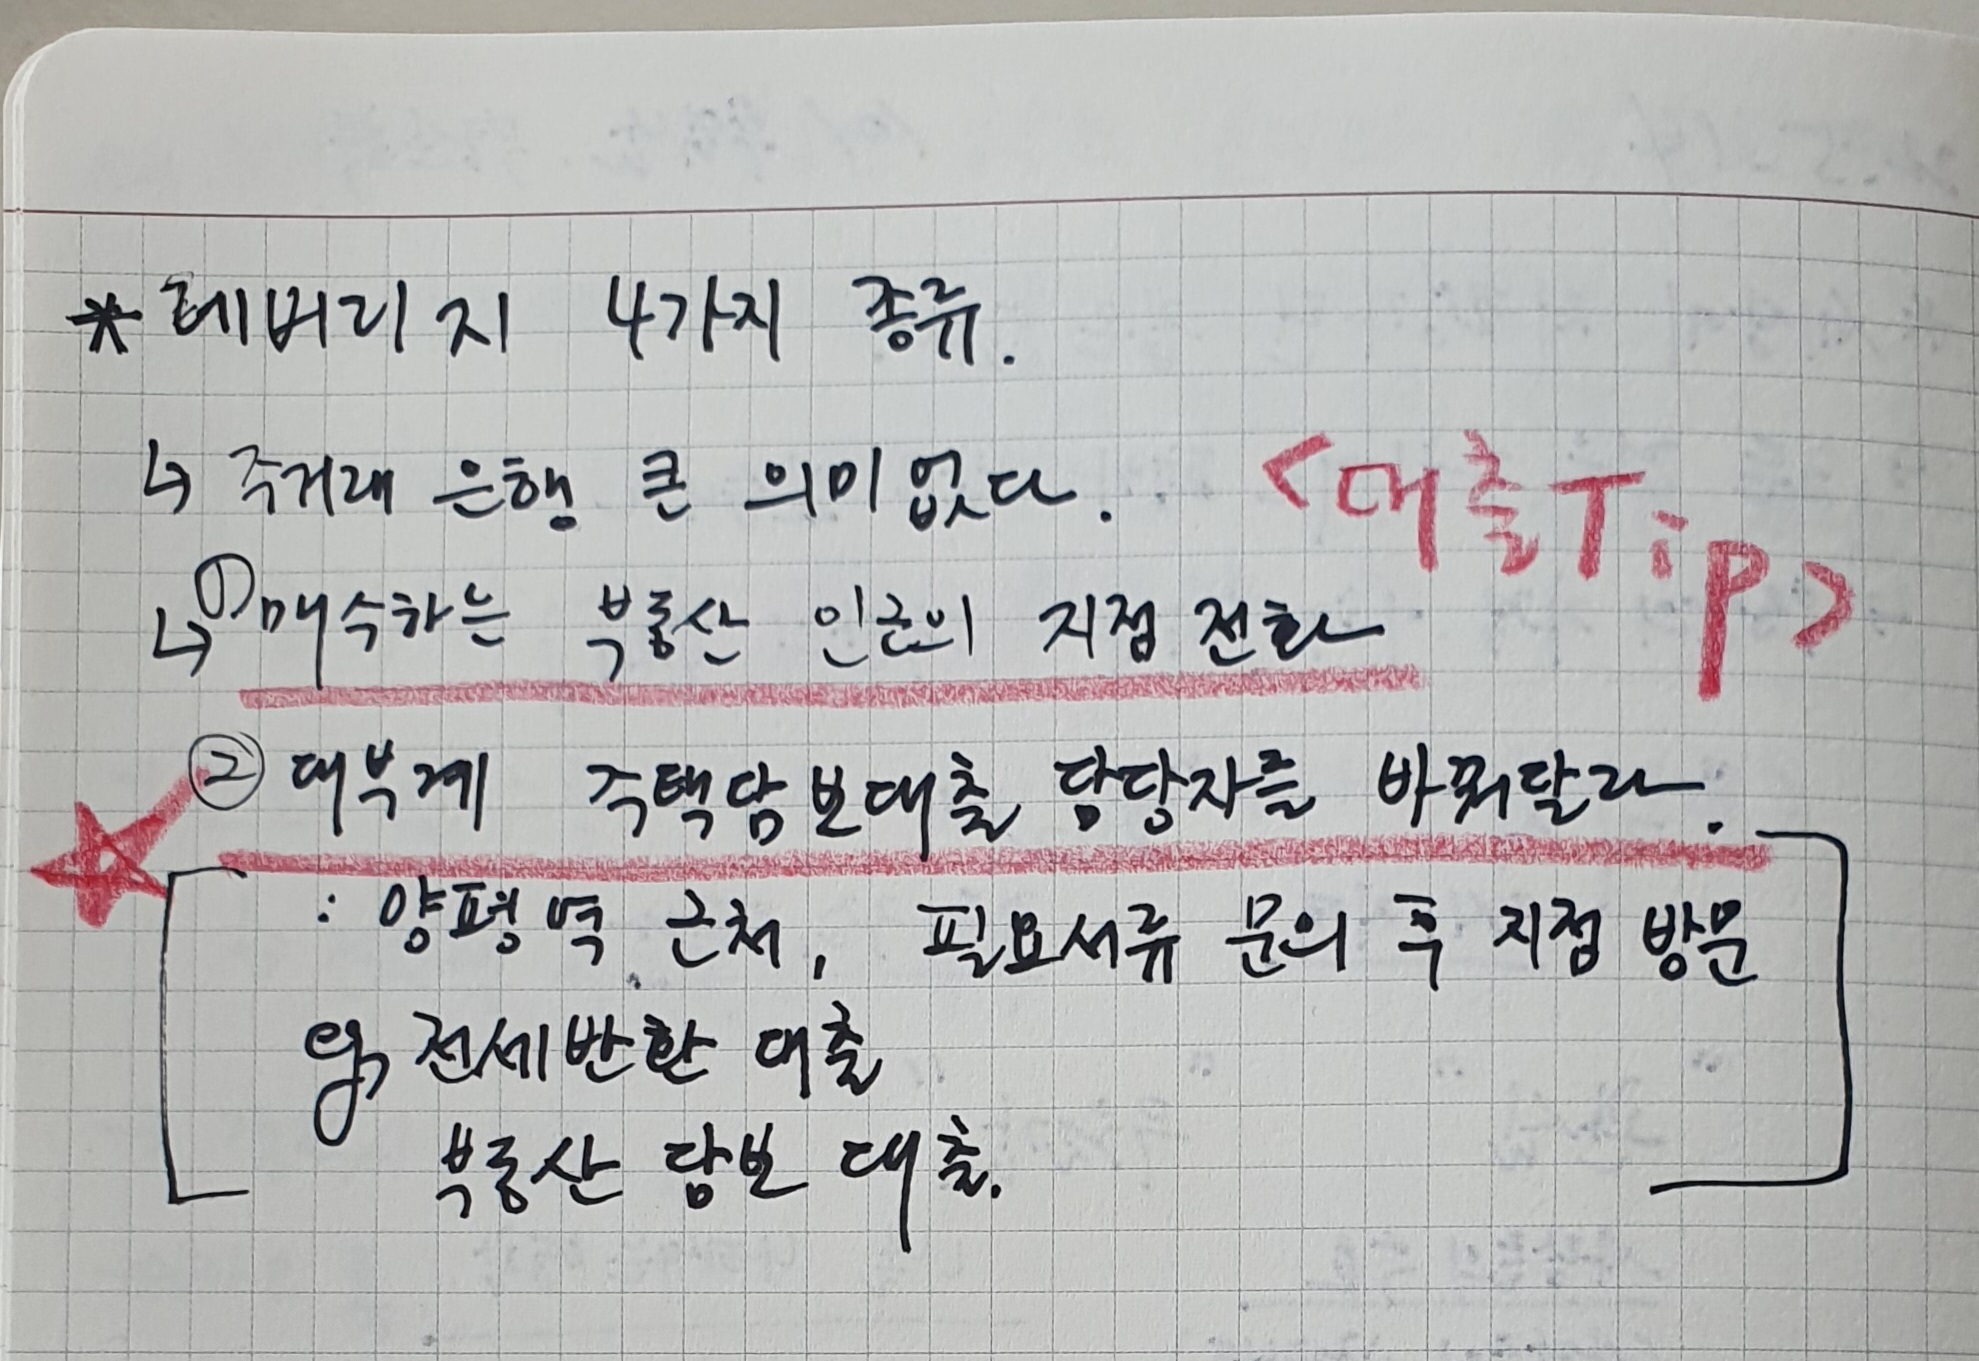 * 레버리지 4가지 종류.
↳ 주거래 은행 큰 의미없다.
<대출 Tip>
↳ ① 매수하는 부동산 인근의 지점 전화
② 대부계 주택담보대출 담당자를 바꿔달라.
: 양평역 근처, 필요서류 문의 후 지점 방문
eg, 전세반환 대출
부동산 담보 대출.